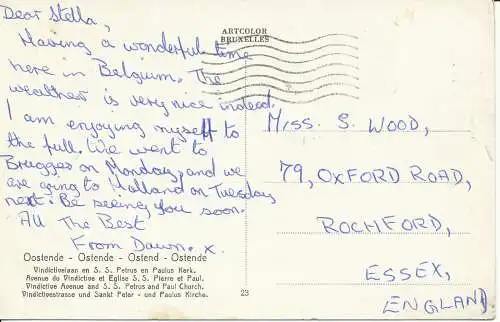 Dear Stella,
Having a wonderful time
here in Belgium. The
weather is very nice indeed.
I am enjoying myself to
the full. We went to
Brugges on Monday, and we
are going to Holland on Tuesday
next. Be seeing you soon.
All The Best
From Dawn. x.
Oostende - Ostende - Ostend - Ostende
Vindictivelaan en S. S. Petrus en Paulus Kerk.
Avenue du Vindictive et Eglise S. S. Pierre et Paul.
Vindictive Avenue and S. S. Petrus and Paul Church.
Vindictivestrasse und Sankt Peter - und Paulus Kirche.
23
ARTCOLOR
BRUXELLES
MISS. S. WOOD,
79, OXFORD ROAD,
ROCHFORD,
ESSEX,
ENGLAND.